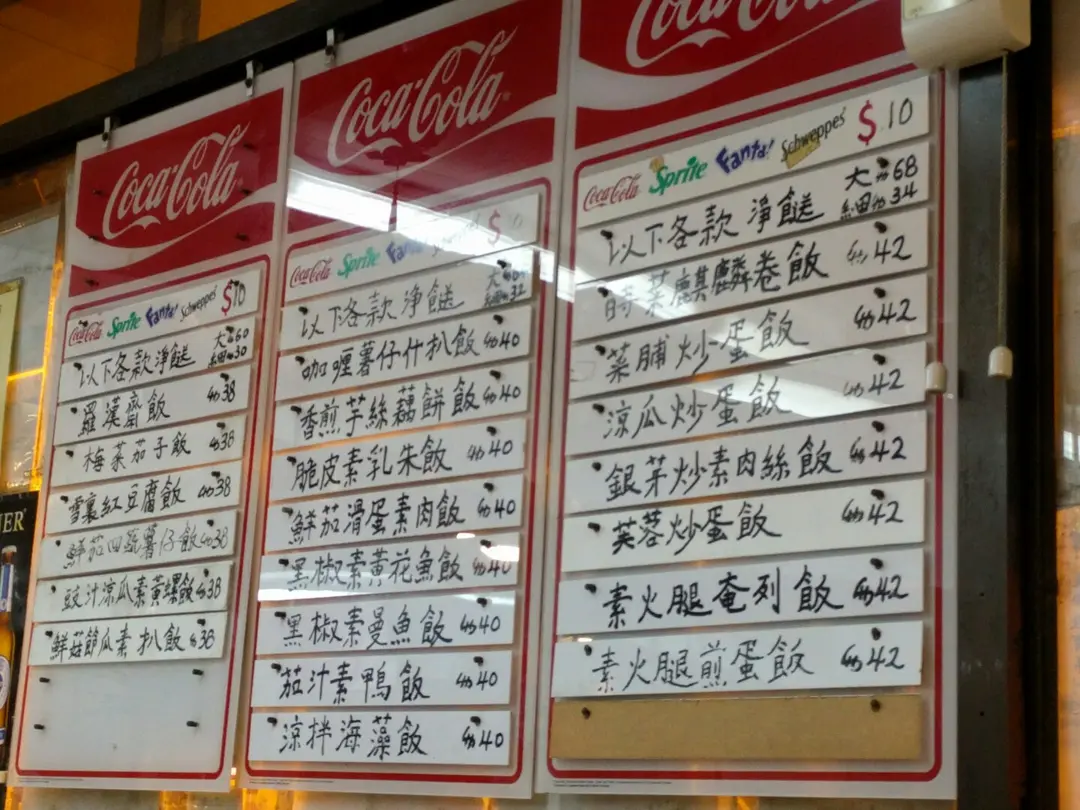 Coca-Cola
Coca-Cola Sprite Fanta! Schweppes $10
以下各款淨餸 大$60 細$30
羅漢齋飯 $38
梅菜茄子飯 $38
雪裏紅豆腐飯 $38
鮮茄四蔬薯仔飯 $38
豉汁涼瓜素黃螺飯 $38
鮮菇節瓜素扒飯 $38
Coca-Cola
Coca-Cola Sprite Fanta $
以下各款淨餸 大 細$32
咖喱薯仔什扒飯 $40
香煎芋絲藕餅飯 $40
脆皮素乳朱飯 $40
鮮茄滑蛋素肉飯 $40
黑椒素黃花魚飯 $40
黑椒素曼魚飯 $40
茄汁素鴨飯 $40
涼拌海藻飯 $40
Coca-Cola
Coca-Cola Sprite Fanta! Schweppes $10
以下各款淨餸 大$68 細$34
時菜麒麟卷飯 $42
菜脯炒蛋飯 $42
涼瓜炒蛋飯 $42
銀芽炒素肉絲飯 $42
芙蓉炒蛋飯 $42
素火腿奄列飯 $42
素火腿煎蛋飯 $42
$42